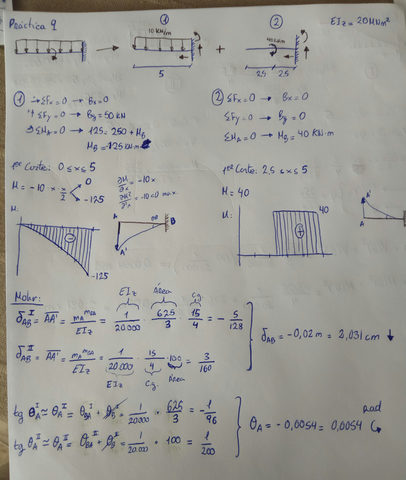 Práctica 9
①
②
EIz = 20 MNm²
10 kN/m
40 kN·m
+
5
2.5 2.5
① → ΣFx = 0 → Bx = 0
↑ ΣFy = 0 → By = 50 kN
ΣMA = 0 → 125 = 250 + MB
MB = -125 kN·m
② ΣFx = 0 → Bx = 0
ΣFy = 0 → By = 0
ΣMA = 0 → MB = 40 kN·m
1er Corte: 0 ≤ x ≤ 5
M = -10 · x · x/2
0
-125
∂M/∂x = -10x
∂M²/∂²x = -10 < 0 max.
1er Corte: 2,5 ≤ x ≤ 5
M = 40
M:
A
A'
B
-125
M:
40
A'
A
Mohr:
EIz
Área
Cg
δAB^I = AA' = mA^mBA/EIz = 1/20.000 · 625/3 · 15/4 = - 5/128
δAB^II = AA' = mA^mBA/EIz = 1/20.000 · 15/4 · 100 = 3/160
EIz
Cg.
Área
δAB = -0,02 m = 2,031 cm ↓
tg θA^I ≃ θA^I = θBA^I + θB^I = 1/20.000 · 625/3 = -1/96
tg θA^II ≃ θA^II = θBA^II + θB^II = 1/20.000 · 100 = 1/200
θA = -0,0054 = 0,0054 rad